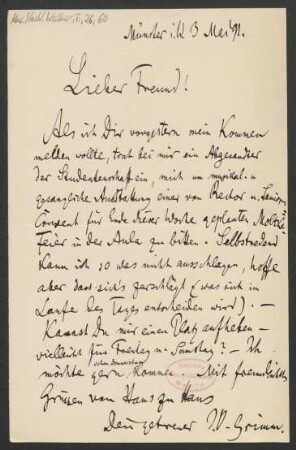 Mus. Nachl. Wüllner, F., 26, 60
Münster i. W 3 Mai 91.
Lieber Freund!
Als ich Dir vorgestern mein Kommen
melden wollte, trat bei mir ein Abgesandter
der Studentenschaft ein, mich um musikal. u
gesangliche Ausstattung einer von Rector u. Senior-
Convent für Ende dieser Woche geplanten Moltke
Feier in der Aula zu bitten. Selbstredend
kann ich so was nicht ausschlagen, hoffe
aber dass sich's zerschlägt (was sich im
Laufe des Tages entscheiden wird). —
Kannst Du mir einen Platz aufheben —
vielleicht für Freitag u. Samstag? — Ich
schon Donnerstag
möchte gern kommen. Mit freundlichen
Grüssen von Haus zu Haus
Dein getreuer J. O. Grimm.